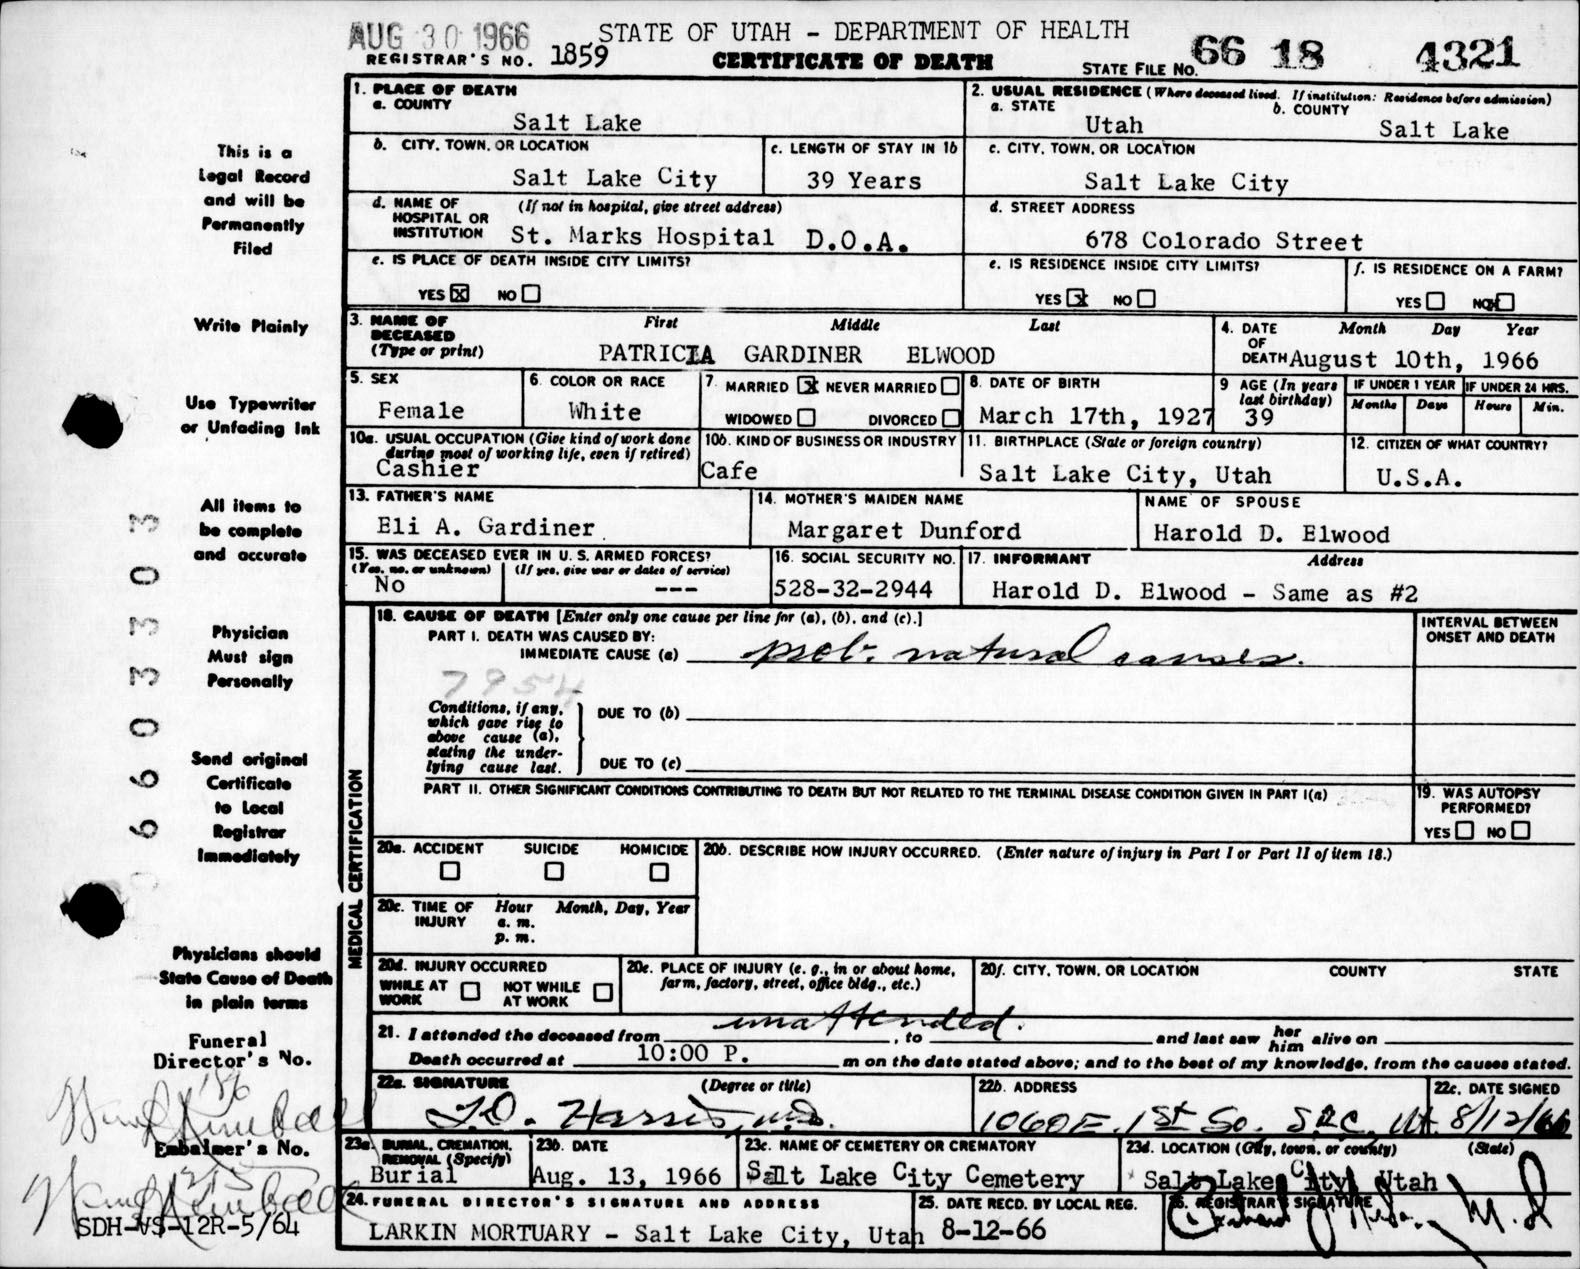 AUG 30 1966
STATE OF UTAH - DEPARTMENT OF HEALTH
REGISTRAR'S NO. 1859
CERTIFICATE OF DEATH
STATE FILE NO. 66 18 4321
1. PLACE OF DEATH
a. COUNTY
Salt Lake
2. USUAL RESIDENCE (Where deceased lived. If institution: Residence before admission)
a. STATE
Utah
b. COUNTY
Salt Lake
b. CITY, TOWN, OR LOCATION
Salt Lake City
c. LENGTH OF STAY IN 1b
39 Years
c. CITY, TOWN, OR LOCATION
Salt Lake City
d. NAME OF HOSPITAL OR INSTITUTION
(If not in hospital, give street address)
St. Marks Hospital D.O.A.
d. STREET ADDRESS
678 Colorado Street
e. IS PLACE OF DEATH INSIDE CITY LIMITS?
YES ☒ NO ☐
e. IS RESIDENCE INSIDE CITY LIMITS?
YES ☒ NO ☐
f. IS RESIDENCE ON A FARM?
YES ☐ NO ☒
3. NAME OF DECEASED
(Type or print)
First Middle Last
PATRICIA GARDINER ELWOOD
4. DATE OF DEATH
Month Day Year
August 10th, 1966
5. SEX
Female
6. COLOR OR RACE
White
7. MARRIED ☒ NEVER MARRIED ☐
WIDOWED ☐ DIVORCED ☐
8. DATE OF BIRTH
March 17th, 1927
9 AGE (In years last birthday)
39
IF UNDER 1 YEAR
Months Days
IF UNDER 24 HRS.
Hours Min.
10a. USUAL OCCUPATION (Give kind of work done during most of working life, even if retired)
Cashier
10b. KIND OF BUSINESS OR INDUSTRY
Cafe
11. BIRTHPLACE (State or foreign country)
Salt Lake City, Utah
12. CITIZEN OF WHAT COUNTRY?
U.S.A.
13. FATHER'S NAME
Eli A. Gardiner
14. MOTHER'S MAIDEN NAME
Margaret Dunford
NAME OF SPOUSE
Harold D. Elwood
15. WAS DECEASED EVER IN U.S. ARMED FORCES?
(Yes, no, or unknown)
No
(If yes, give war or dates of service)
---
16. SOCIAL SECURITY NO.
528-32-2944
17. INFORMANT Address
Harold D. Elwood - Same as #2
MEDICAL CERTIFICATION
18. CAUSE OF DEATH [Enter only one cause per line for (a), (b), and (c).]
PART I. DEATH WAS CAUSED BY:
IMMEDIATE CAUSE (a) prob. natural causes.
INTERVAL BETWEEN ONSET AND DEATH
7954
Conditions, if any, which gave rise to above cause (a), stating the underlying cause last.
DUE TO (b)
DUE TO (c)
PART II. OTHER SIGNIFICANT CONDITIONS CONTRIBUTING TO DEATH BUT NOT RELATED TO THE TERMINAL DISEASE CONDITION GIVEN IN PART I(a)
19. WAS AUTOPSY PERFORMED?
YES ☐ NO ☐
20a. ACCIDENT SUICIDE HOMICIDE
☐ ☐ ☐
20b. DESCRIBE HOW INJURY OCCURRED. (Enter nature of injury in Part I or Part II of item 18.)
20c. TIME OF INJURY
Hour Month, Day, Year
a. m.
p. m.
20d. INJURY OCCURRED
WHILE AT WORK ☐ NOT WHILE AT WORK ☐
20e. PLACE OF INJURY (e. g., in or about home, farm, factory, street, office bldg., etc.)
20f. CITY, TOWN, OR LOCATION COUNTY STATE
21. I attended the deceased from unattended. , to and last saw her him alive on
Death occurred at 10:00 P. m on the date stated above; and to the best of my knowledge, from the causes stated.
22a. SIGNATURE (Degree or title)
J.O. Harris, m.D.
22b. ADDRESS
1060 E. 1st So. S.L.C. Ut.
22c. DATE SIGNED
8/12/66
23a. BURIAL, CREMATION, REMOVAL (Specify)
Burial
23b. DATE
Aug. 13, 1966
23c. NAME OF CEMETERY OR CREMATORY
Salt Lake City Cemetery
23d. LOCATION (City, town, or county) (State)
Salt Lake City, Utah
24. FUNERAL DIRECTOR'S SIGNATURE AND ADDRESS
LARKIN MORTUARY - Salt Lake City, Utah
25. DATE RECD. BY LOCAL REG.
8-12-66
26. REGISTRAR'S SIGNATURE
M.D
This is a
Legal Record
and will be
Permanently
Filed
Write Plainly
Use Typewriter
or Unfading Ink
All items to
be complete
and accurate
Physician
Must sign
Personally
Send original
Certificate
to Local
Registrar
Immediately
Physicians should
State Cause of Death
in plain terms
Funeral
Director's No.
186
Embalmer's No.
SDH-VS-12R-5/64
66033303